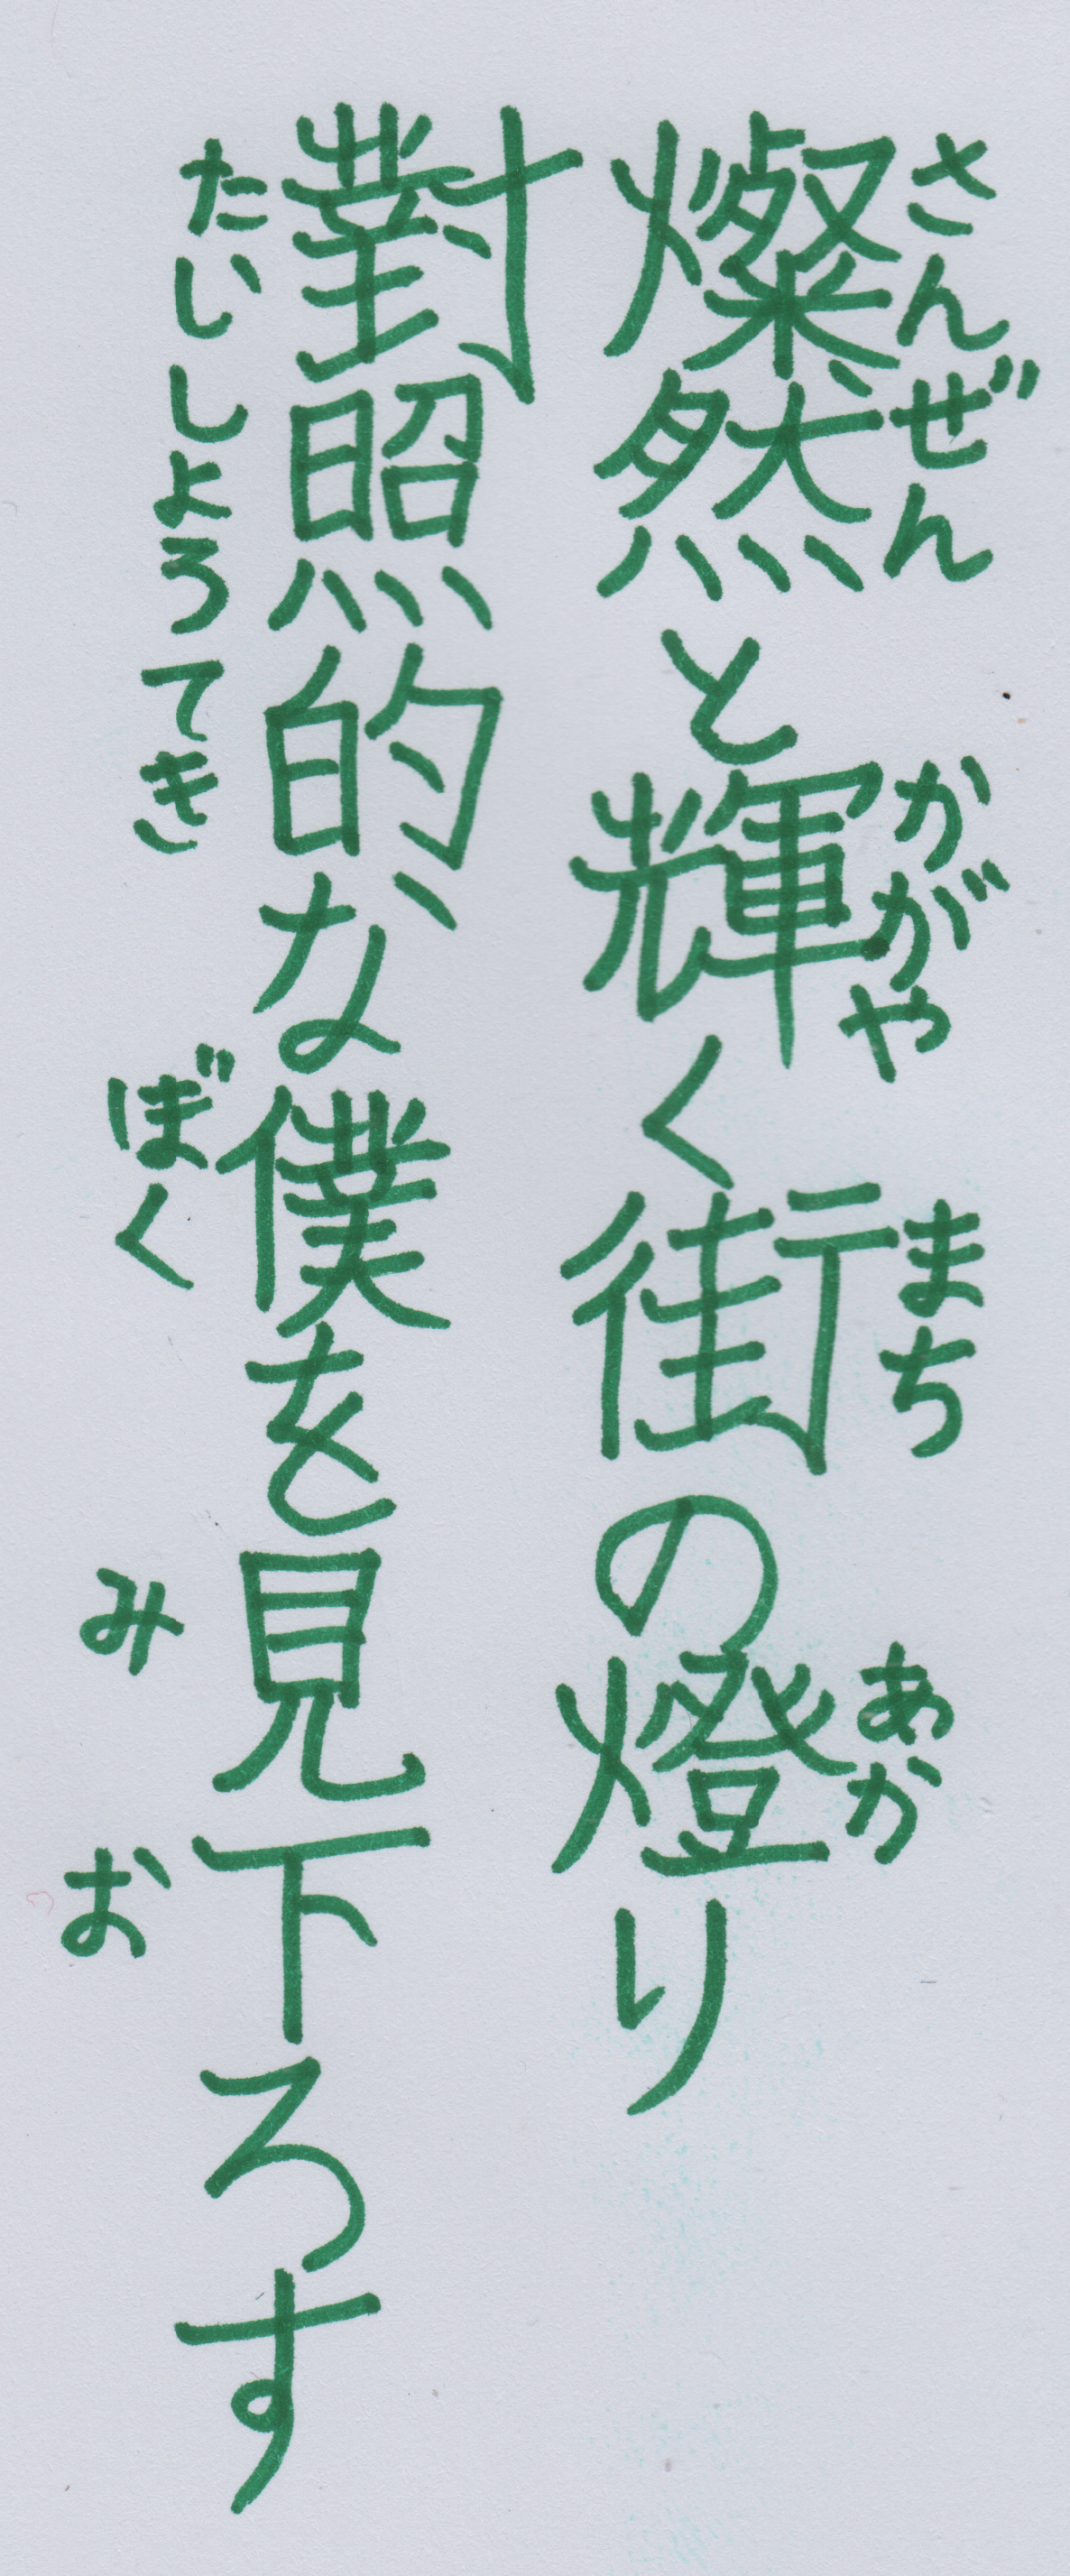 燦然と輝く街の燈り
さんぜん かがや まち あか
對照的な僕を見下ろす
たいしょうてき ぼく み お